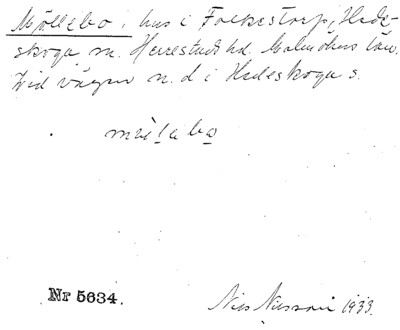 Möllebo, hus i Folkestorp, Hede-
skoga sn. Herrestads hd. Malmöhus län.
Vid vägen n. d i Hedeskoga s.
Nr 5634. Nils Nilsson 1933.